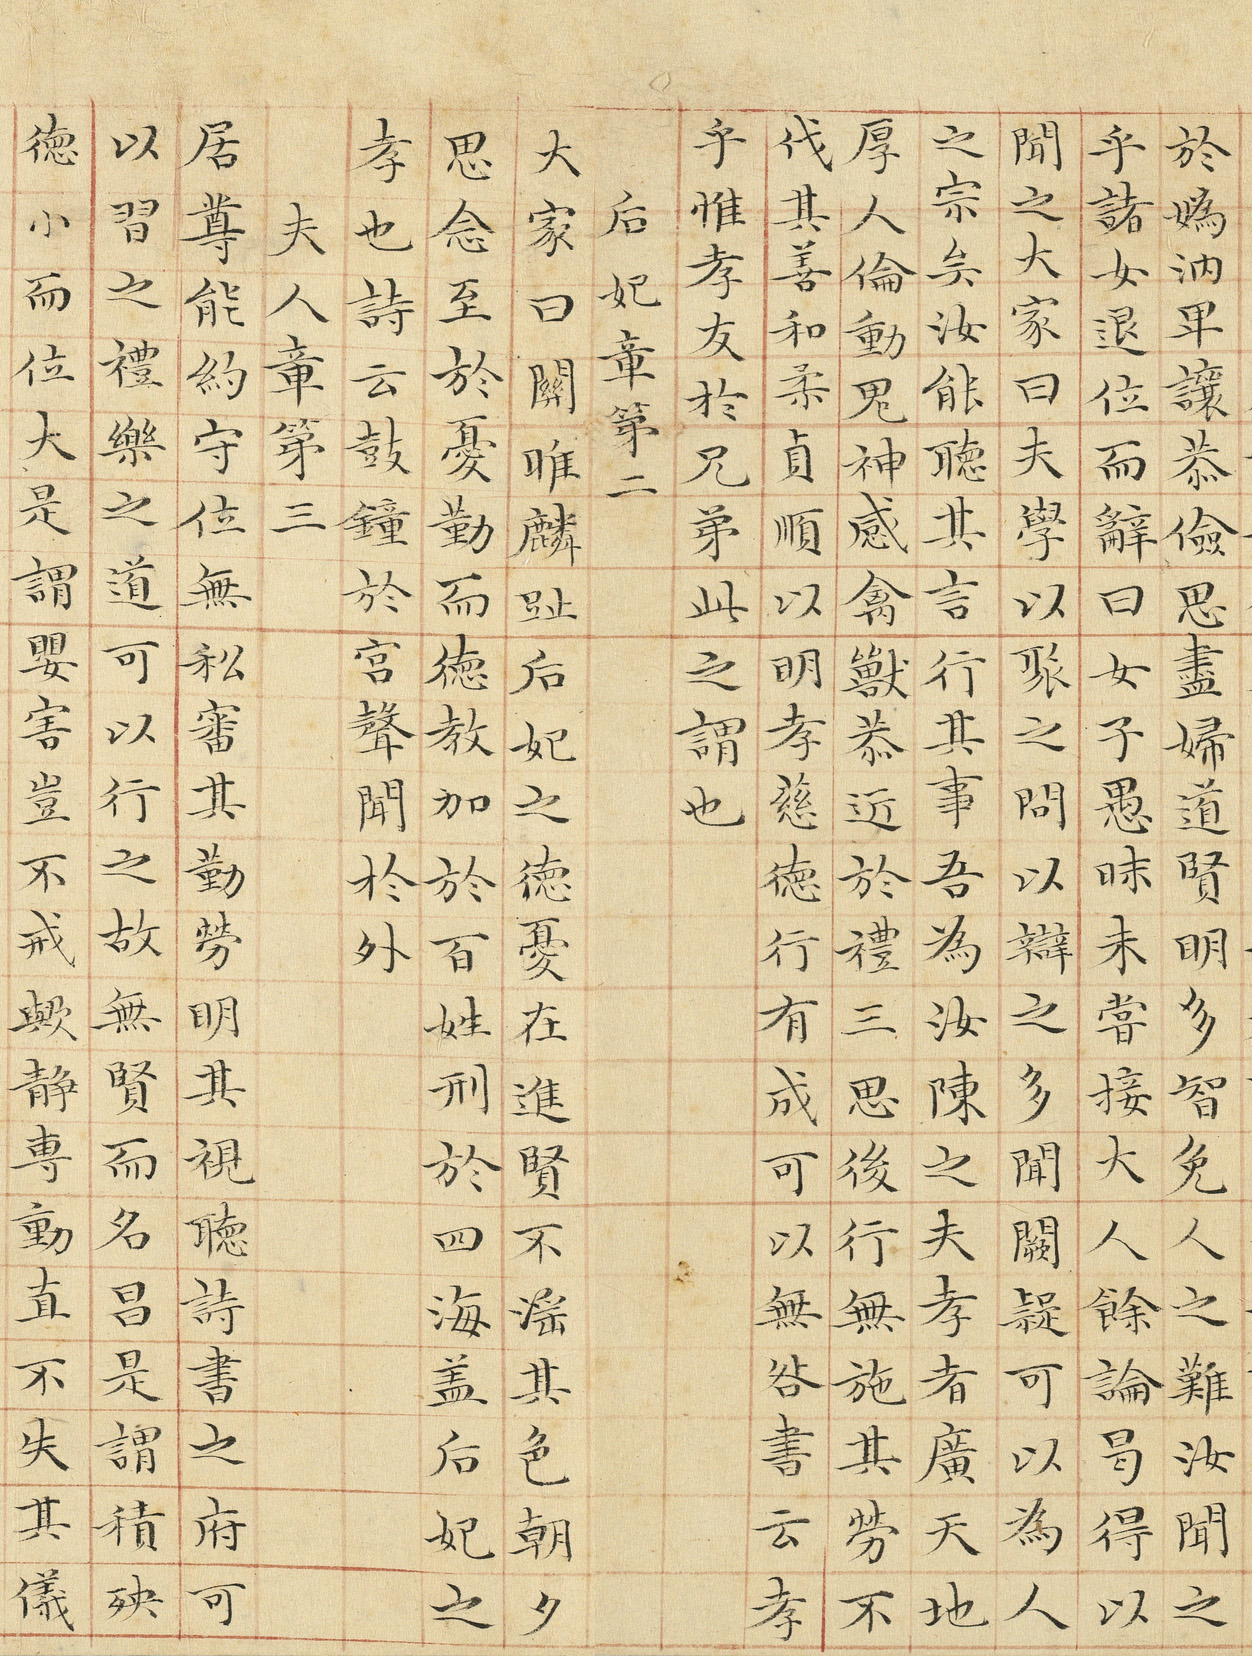 於嬀汭卑讓恭儉思盡婦道賢明多智免人之難汝聞之
乎諸女退位而辭曰女子愚昧未嘗接大人餘論曷得以
聞之大家曰夫學以聚之問以辯之多聞闕疑可以為人
之宗矣汝能聽其言行其事吾為汝陳之夫孝者廣天地
厚人倫動鬼神感禽獸恭近於禮三思後行無施其勞不
伐其善和柔貞順以明孝慈德行有成可以無咎書云孝
乎惟孝友於兄弟此之謂也
后妃章第二
大家曰關雎麟趾后妃之德憂在進賢不淫其色朝夕
思念至於憂勤而德教加於百姓刑於四海盖后妃之
孝也詩云鼓鐘於宮聲聞於外
夫人章第三
居尊能約守位無私審其勤勞明其視聽詩書之府可
以習之禮樂之道可以行之故無賢而名昌是謂積殃
德小而位大是謂嬰害豈不戒歟静專動直不失其儀